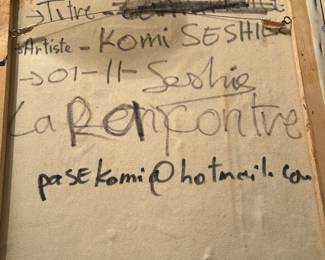 →Titre -
→Artiste - KOMI SESHIE
→01-11- Seshie
La Rencontre
pasekomi@hotmail.com